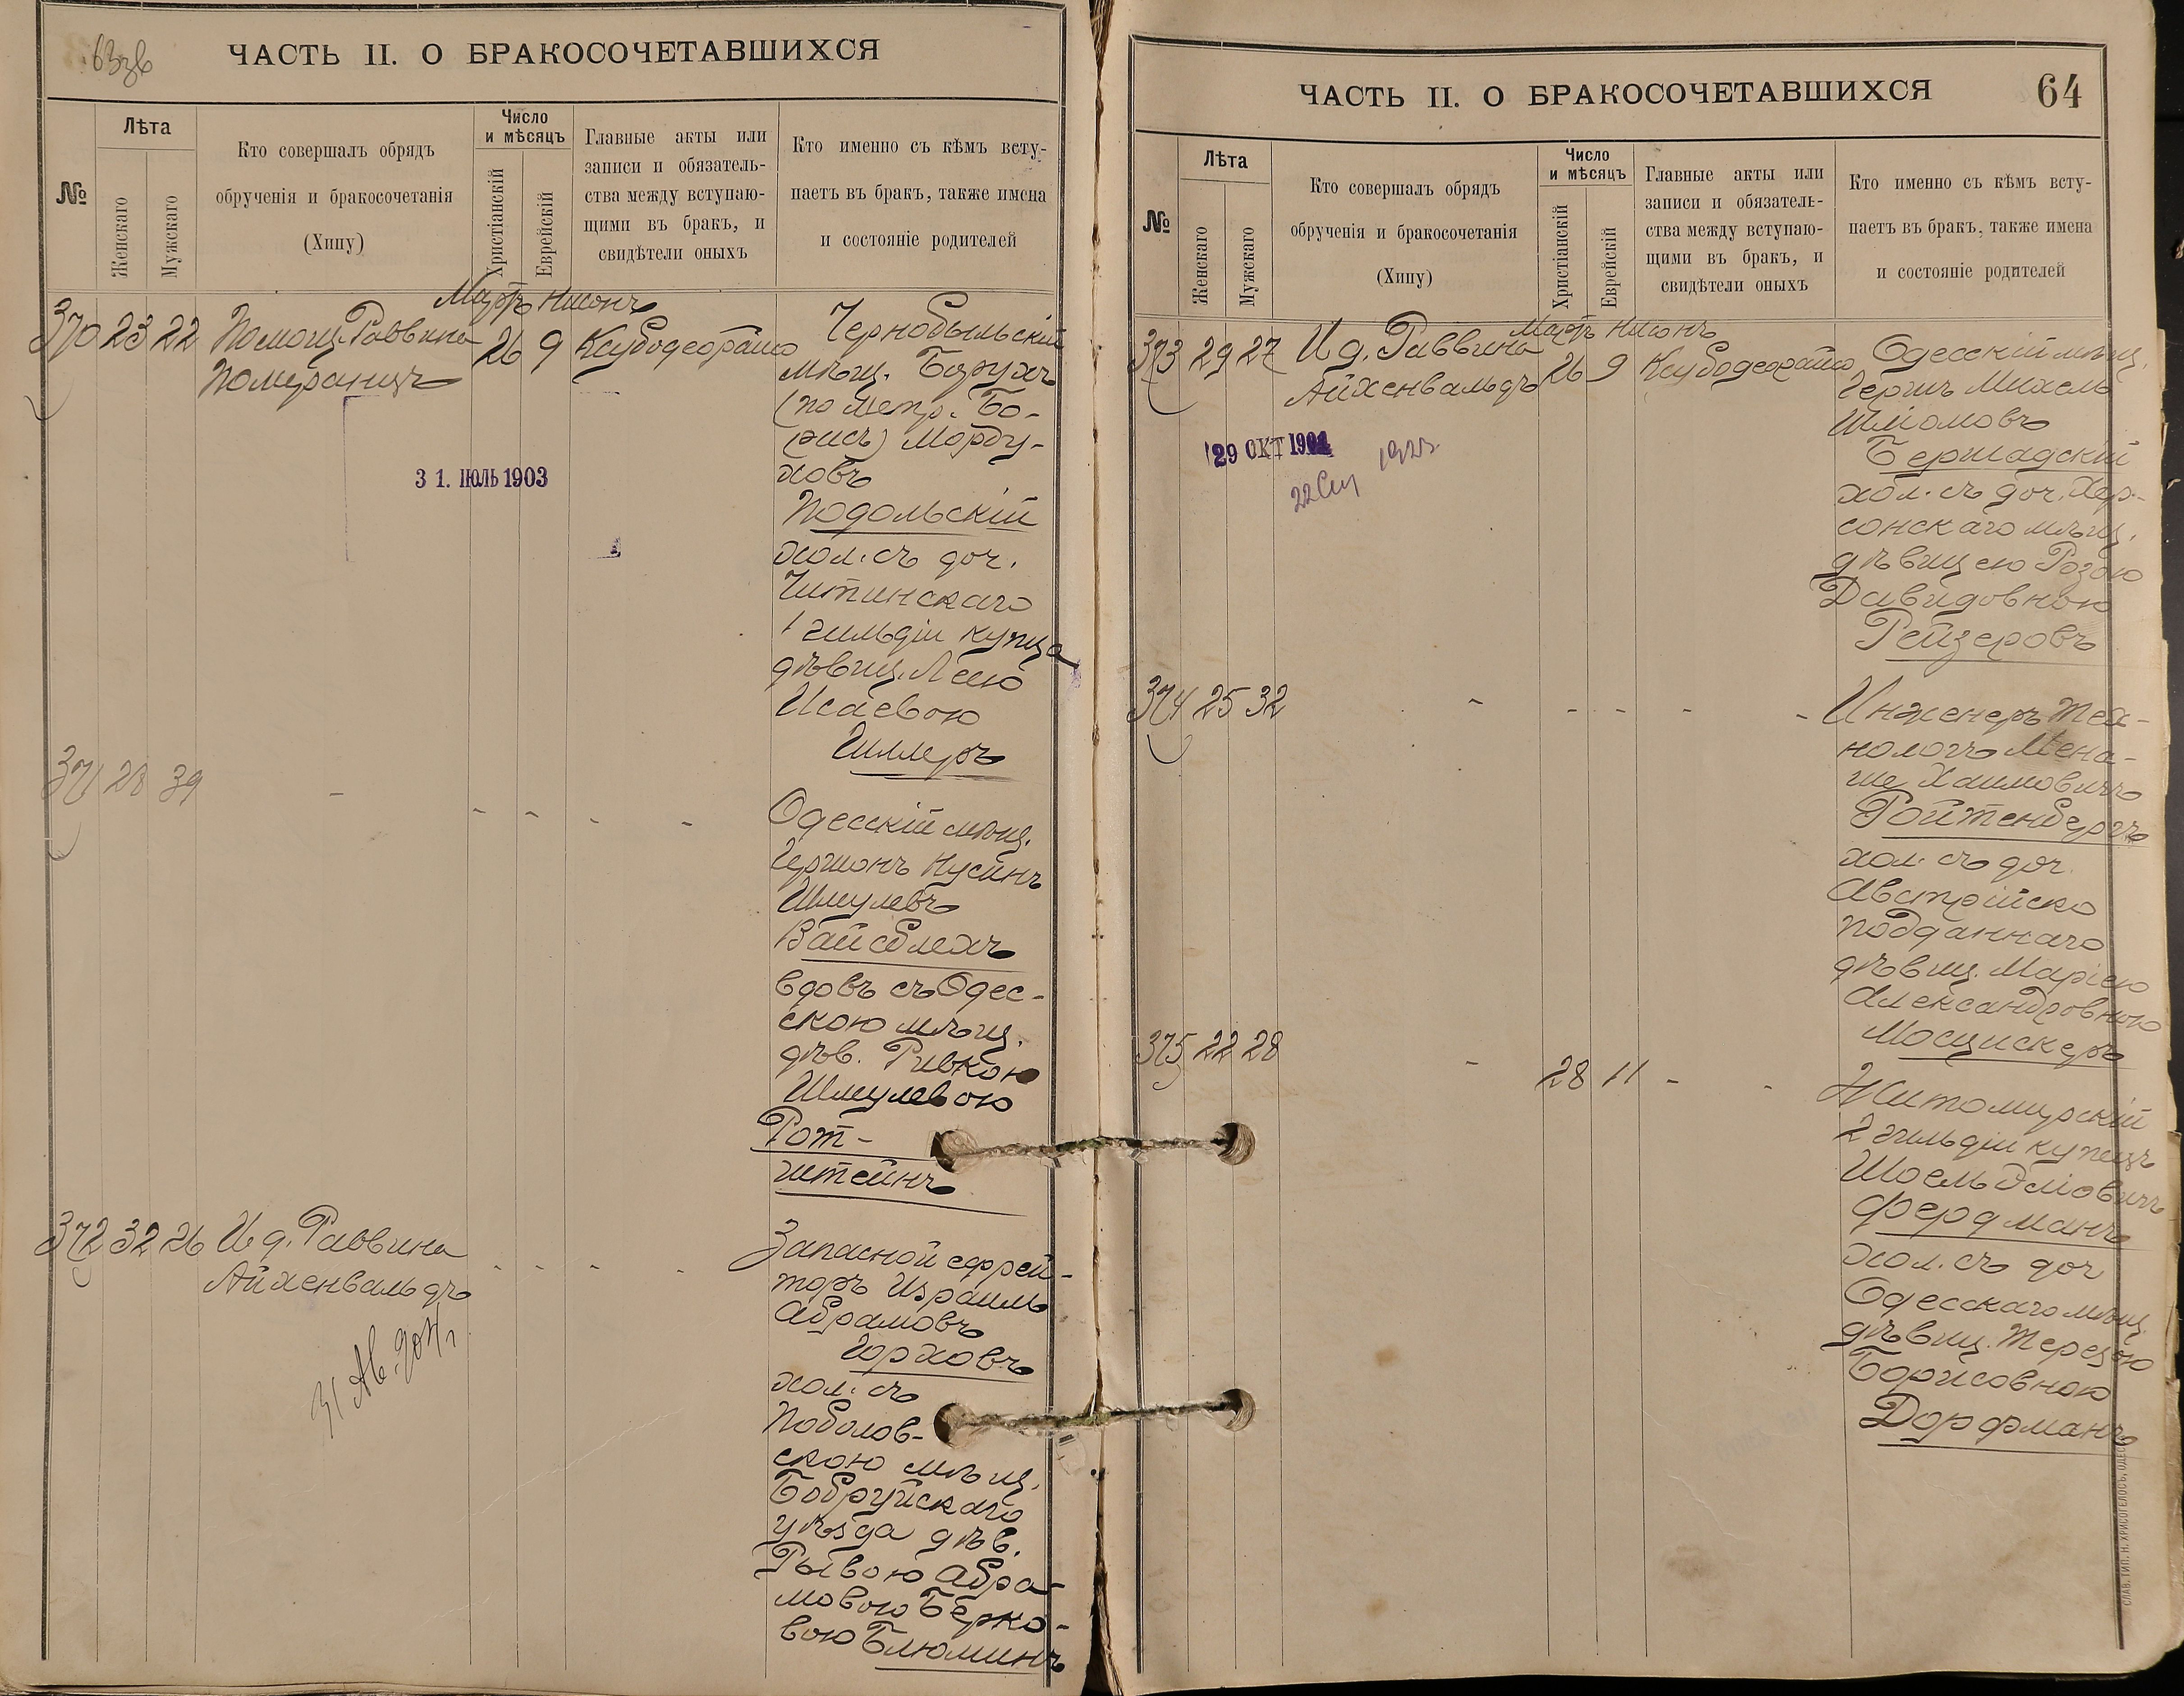 63зв
ЧАСТЬ II. О БРАКОСОЧЕТАВШИХСЯ
№
Лѣта
Женскаго
Мужскаго
Кто совершалъ обрядъ
обрученія и бракосочетанія
(Хипу)
Число
и мѣсяцъ
Христіанскій
Еврейскій
Главные акты или
записи и обязатель-
ства между вступаю-
щими въ бракъ, и
свидѣтели оныхъ
Кто именно съ кѣмъ всту-
паетъ въ бракъ, также имена
и состояніе родителей
Мартъ Нисонъ
370 23 22 Помощ. Раввина 26 9 Ксубодеорайсо
Померанцъ
31. ІЮЛЬ 1903
Чернобыльскій
мѣщ. Борухъ
(по метр. Бо-
Морду-
ховъ
Подольскій
хол. съ доч.
Читинскаго
1 гильдіи купца
дѣвиц. Леею
Исаевою
Гиллеръ
371 28 39 - - - - -
Одесскій мѣщ.
Гершонъ Нусинъ
Шмулевъ
Вайсблехъ
вдовъ съ Одес-
скою мѣщ.
дѣв. Ривкою
Шмулевою
Рот-
штейнъ
372 32 26 И д. Раввина - - - -
Айхенвальдъ
31 Ав.
Запасной ефрей-
торъ Израиль
Абрамовъ
Горховъ
хол. съ
Поболов-
скою мѣщ.
Бобруйскаго
уѣзда дѣв.
Рывою Абра-
мовою Берко-
вою Блюминъ
ЧАСТЬ II. О БРАКОСОЧЕТАВШИХСЯ
64
№
Лѣта
Женскаго
Мужскаго
Кто совершалъ обрядъ
обрученія и бракосочетанія
(Хипу)
Число
и мѣсяцъ
Христіанскій
Еврейскій
Главные акты или
записи и обязатель-
ства между вступаю-
щими въ бракъ, и
свидѣтели оныхъ
Кто именно съ кѣмъ всту-
паетъ въ бракъ, также имена
и состояніе родителей
Мартъ Нисонъ
373 29 27 И д. Раввина 26 9 Ксубодеорайсо
Айхенвальдъ
29 ОКТ
22
Одесскій мѣщ.
Гершъ Михель
Шліомовъ
Бершадскій
хол. съ доч. Хер-
сонскаго мѣщ.
дѣвицею Розою
Давидовною
Рейзеровъ
374 25 32 - - - - -
Инженеръ Тех-
нологъ Мена-
ше Хаимовичъ
Ройтенбергъ
хол. съ доч.
Австрійско
подданнаго
дѣвиц. Маріею
Александровною
Мосцискеръ
375 22 28 - 28 11 - -
Житомирскій
2 гильдіи купецъ
Шоель Эліовичъ
Фердманъ
хол. съ доч
Одесскаго мѣщ.
дѣвиц. Терезою
Борисовною
Дорфманъ
СЛАВ. ТИП. Н. ХРИСОГЕЛОСЪ, ОДЕССА